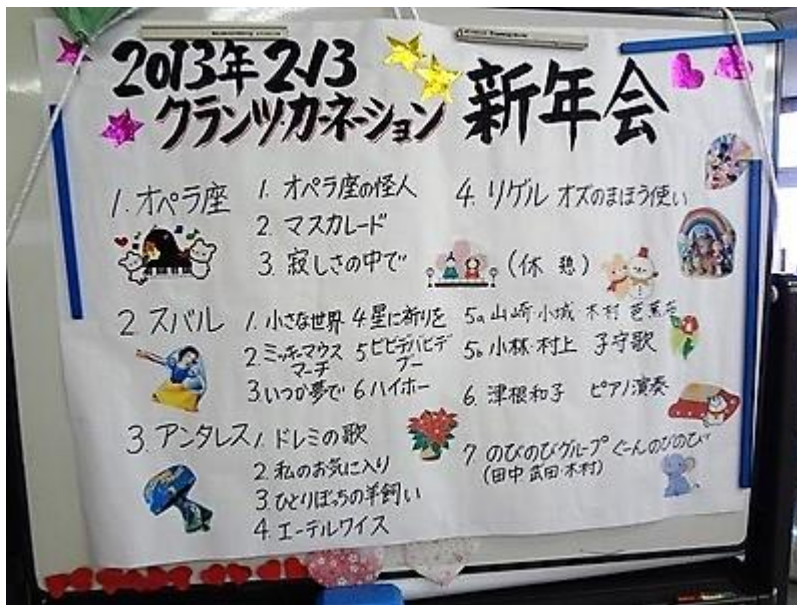 2013年 2.13
クランツ・カーネーション 新年会
1. オペラ座
1. オペラ座の怪人
2. マスカレード
3. 寂しさの中で
2 スバル
1. 小さな世界
2. ミッキーマウス
マーチ
3. いつか夢で
4 星に祈りを
5 ビビデバビデ
ブー
6 ハイホー
3. アンタレス
1. ドレミの歌
2 私のお気に入り
3 ひとりぼっちの羊飼い
4 エーデルワイス
4. リゲル オズのまほう使い
(休憩)
5a 山崎 小城 木村 芭蕉布
5b 小林・村上 子守歌
6. 津根和子 ピアノ演奏
7 のびのびグループ ぐーんのびのび
(田中 武田 木村)